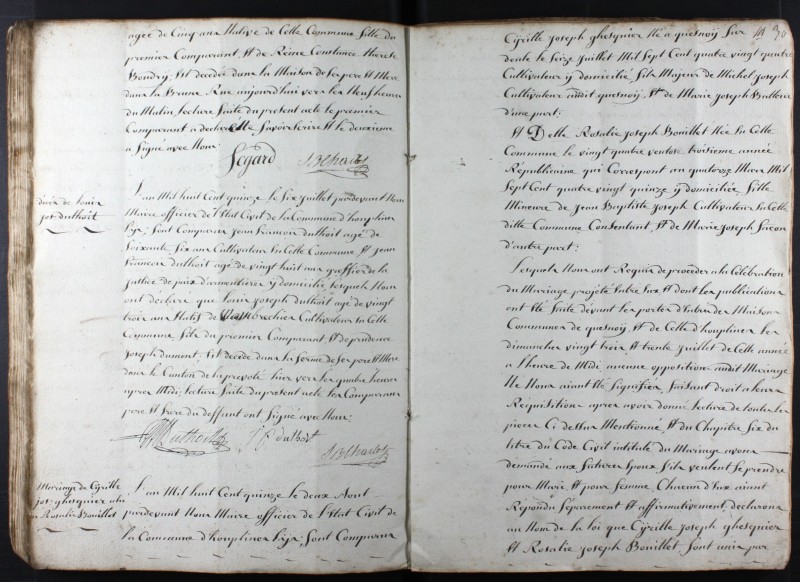 agée de Cinq ans Native de Cette Commune fille du
premier Comparant Et de Reine Constance therese
Boudry, Est decedée dans la Maison de ses pere Et Mere
dans la Rue aujourd'hui vers les Neuf heures
du Matin, Lecture faite du present acte le premier
Comparant a declaré Savoir Ecrire Et le deuxieme
a Signé avec Nous
Segard
décès de Louis
jos. duthoit
L'an Mil huit Cent quinze le Six Juillet pardevant Nous
Maire officier de l'Etat Civil de la Commune d'houplines
Lys; Sont Comparus Jean francois duthoit agé de
Soixante Six ans Cultivateur En Cette Commune Et Jean
francois duthoit agé de vingt huit ans greffier de la
Justice de paix d'armentières y domicilié, lesquels Nous
ont declaré que Louis Joseph duthoit agé de vingt
trois ans Natif de Cultivateur En Cette
Commune, fils du premier Comparant Et de prudence
Joseph dumont, Est decédé dans la ferme de Ses pere Et Mere
dans le Canton de la prevoté hier vers les quatre heures
apres Midi, Lecture faite du present acte les Comparans
pere Et frere du deffunt ont Signé avec Nous;
Duthoit J f duthoit
Mariage de Cyrille
jos. ghesquier
Rosalie Bouillet
L'an Mil huit Cent quinze le deux Aout
pardevant Nous Maire officier de l'Etat Civil de
la Commune d'houplines Lys; Sont Comparus
Cyrille Joseph ghesquier Né a quesnoy Sur
deule le Seize Juillet Mil Sept Cent quatre vingt quatre
Cultivateur y domicilié fils Majeur de Michel Joseph
Cultivateur audit quesnoy, Et de Marie Joseph
d'une part;
Et Delle Rosalie Joseph Bouillet Née En Cette
Commune le vingt quatre ventose troisieme année
Républicaine qui Correspont au quatorze Mars Mil
Sept Cent quatre vingt quinze y domiciliée fille
Mineure de Jean Baptiste Joseph Cultivateur En Cette
ditte Commune Consentant, Et de Marie Joseph
d'autre part;
Lesquels Nous ont Requis de proceder a la Célébration
du Mariage projeté Entre Eux Et dont les publications
ont Eté faite devant les portes d'Entrées des Maisons
Communes de quesnoy Et de Celle d'houplines les
dimanches vingt trois Et trente Juillet de Cette année
a l'heure de Midi aucune opposition audit Mariage
Ne Nous aiant Eté Signifiée, faisant droit a leur
Requisition apres avoir donné Lecture de toutes les
pieces Ci dessus Mentionné, Et du Chapitre Six du
titre du Code Civil intitulé du Mariage avons
demandé aux futures Epoux S'ils veulent Se prendre
pour Mari Et pour femme Chacun d'Eux aiant
Répondu Séparement Et affirmativement, declarons
au Nom de la loi que Cyrille Joseph ghesquier
Et Rosalie Joseph Bouillet, Sont unis par